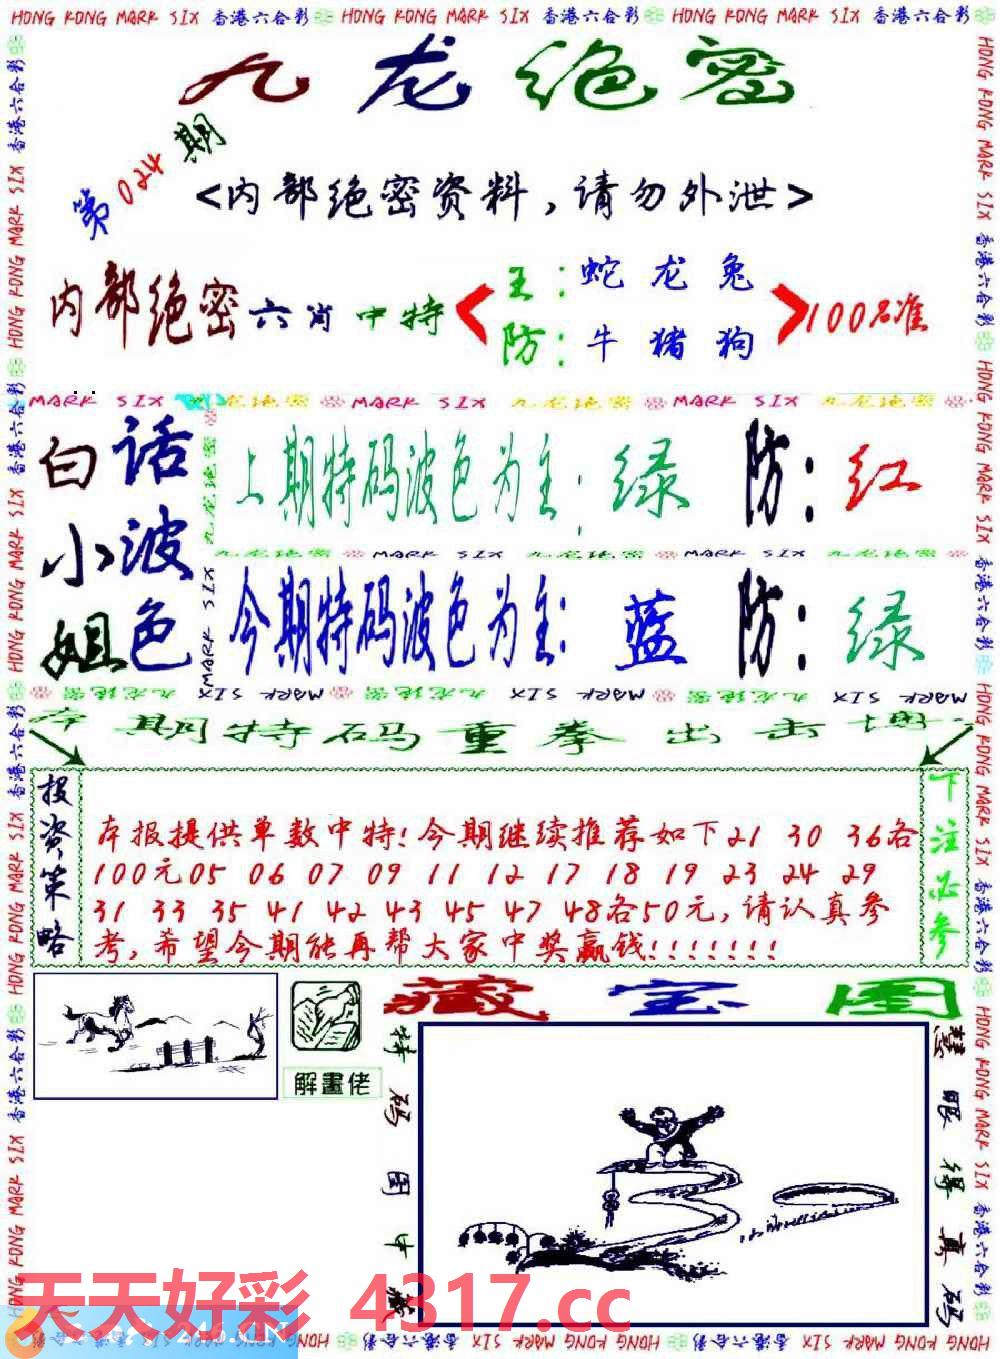 HONG KONG MARK SIX 香港六合彩 HONG KONG MARK SIX 香港六合彩 HONG KONG MARK SIX 香港六合彩
九龙绝密
第024期
<内部绝密资料,请勿外泄>
内部绝密六肖中特
主:蛇 龙 兔
防:牛 猪 狗
100%准
MARK SIX 九龙绝密 MARK SIX 九龙绝密 MARK SIX 九龙绝密
白小姐
话波色
上期特码波色为主:绿 防:红
九龙绝密 MARK SIX 九龙绝密 MARK SIX 九龙绝密
今期特码波色为主:蓝 防:绿
本期特码重拳出击
投资策略
本报提供单数中特!今期继续推荐如下21 30 36各
100元05 06 07 09 11 12 17 18 19 23 24 29
31 33 35 41 42 43 45 47 48各50元,请认真参
考,希望今期能再帮大家中奖赢钱!!!!!!!
下注必参
藏宝图
解畫佬
特码图中藏
慧眼得真码
天天好彩 4317.cc